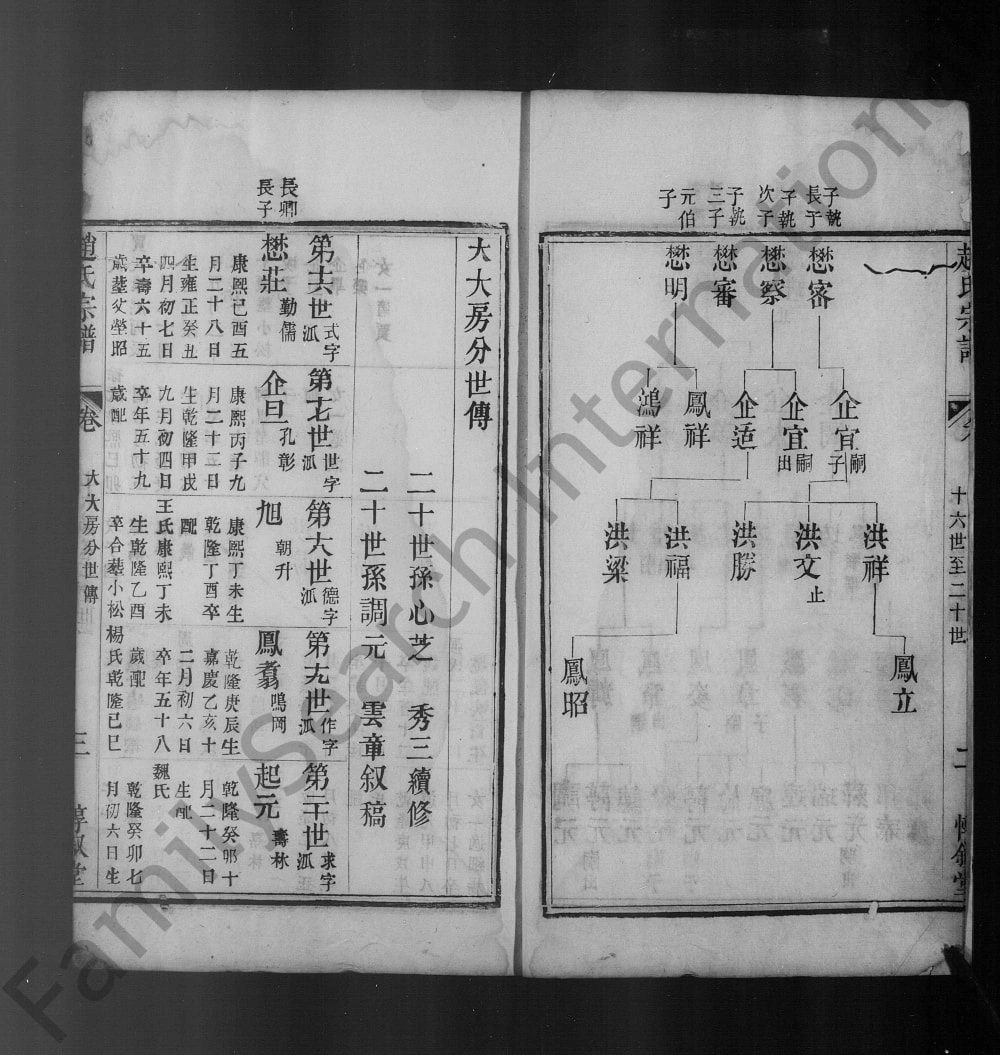 趙氏宗譜
十六世至二十世
二
惇敘堂
子執
長子
懋密
子執
次子
懋察
子執
三子
懋審
元伯
子
懋明
企宜
嗣
子
企宜
嗣
出
企适
鳳祥
鴻祥
洪祥
洪文
止
洪勝
洪福
洪梁
鳳立
鳳昭
大大房分世傳
二十世孫心芝 秀三續修
二十世孫調元 雲章叙稿
第十六世 式字派
第十七世 世字派
第十八世 德字派
第十九世 作字派
第二十世 求字派
長卿
長子
懋莊 勤儒
企旦 孔彰
旭 朝升
鳳翥 鳴岡
起元 壽林
康熙己酉五
月二十八日
生雍正癸丑
四月初七日
卒壽六十五
歲葬父塋昭
康熙丙子九
月二十三日
生乾隆甲戌
九月初四日
卒年五十九
歲配
王氏康熙丁未
生乾隆乙酉
卒合葬小松
康熙丁未生
乾隆丁酉卒
配
楊氏乾隆己巳
乾隆庚辰生
嘉慶乙亥十
二月初六日
卒年五十八
歲配
魏氏
乾隆癸卯十
月二十二日
生配
乾隆癸卯七
月初六日生
趙氏宗譜
卷
大大房分世傳
三
惇敘堂
FamilySearch International